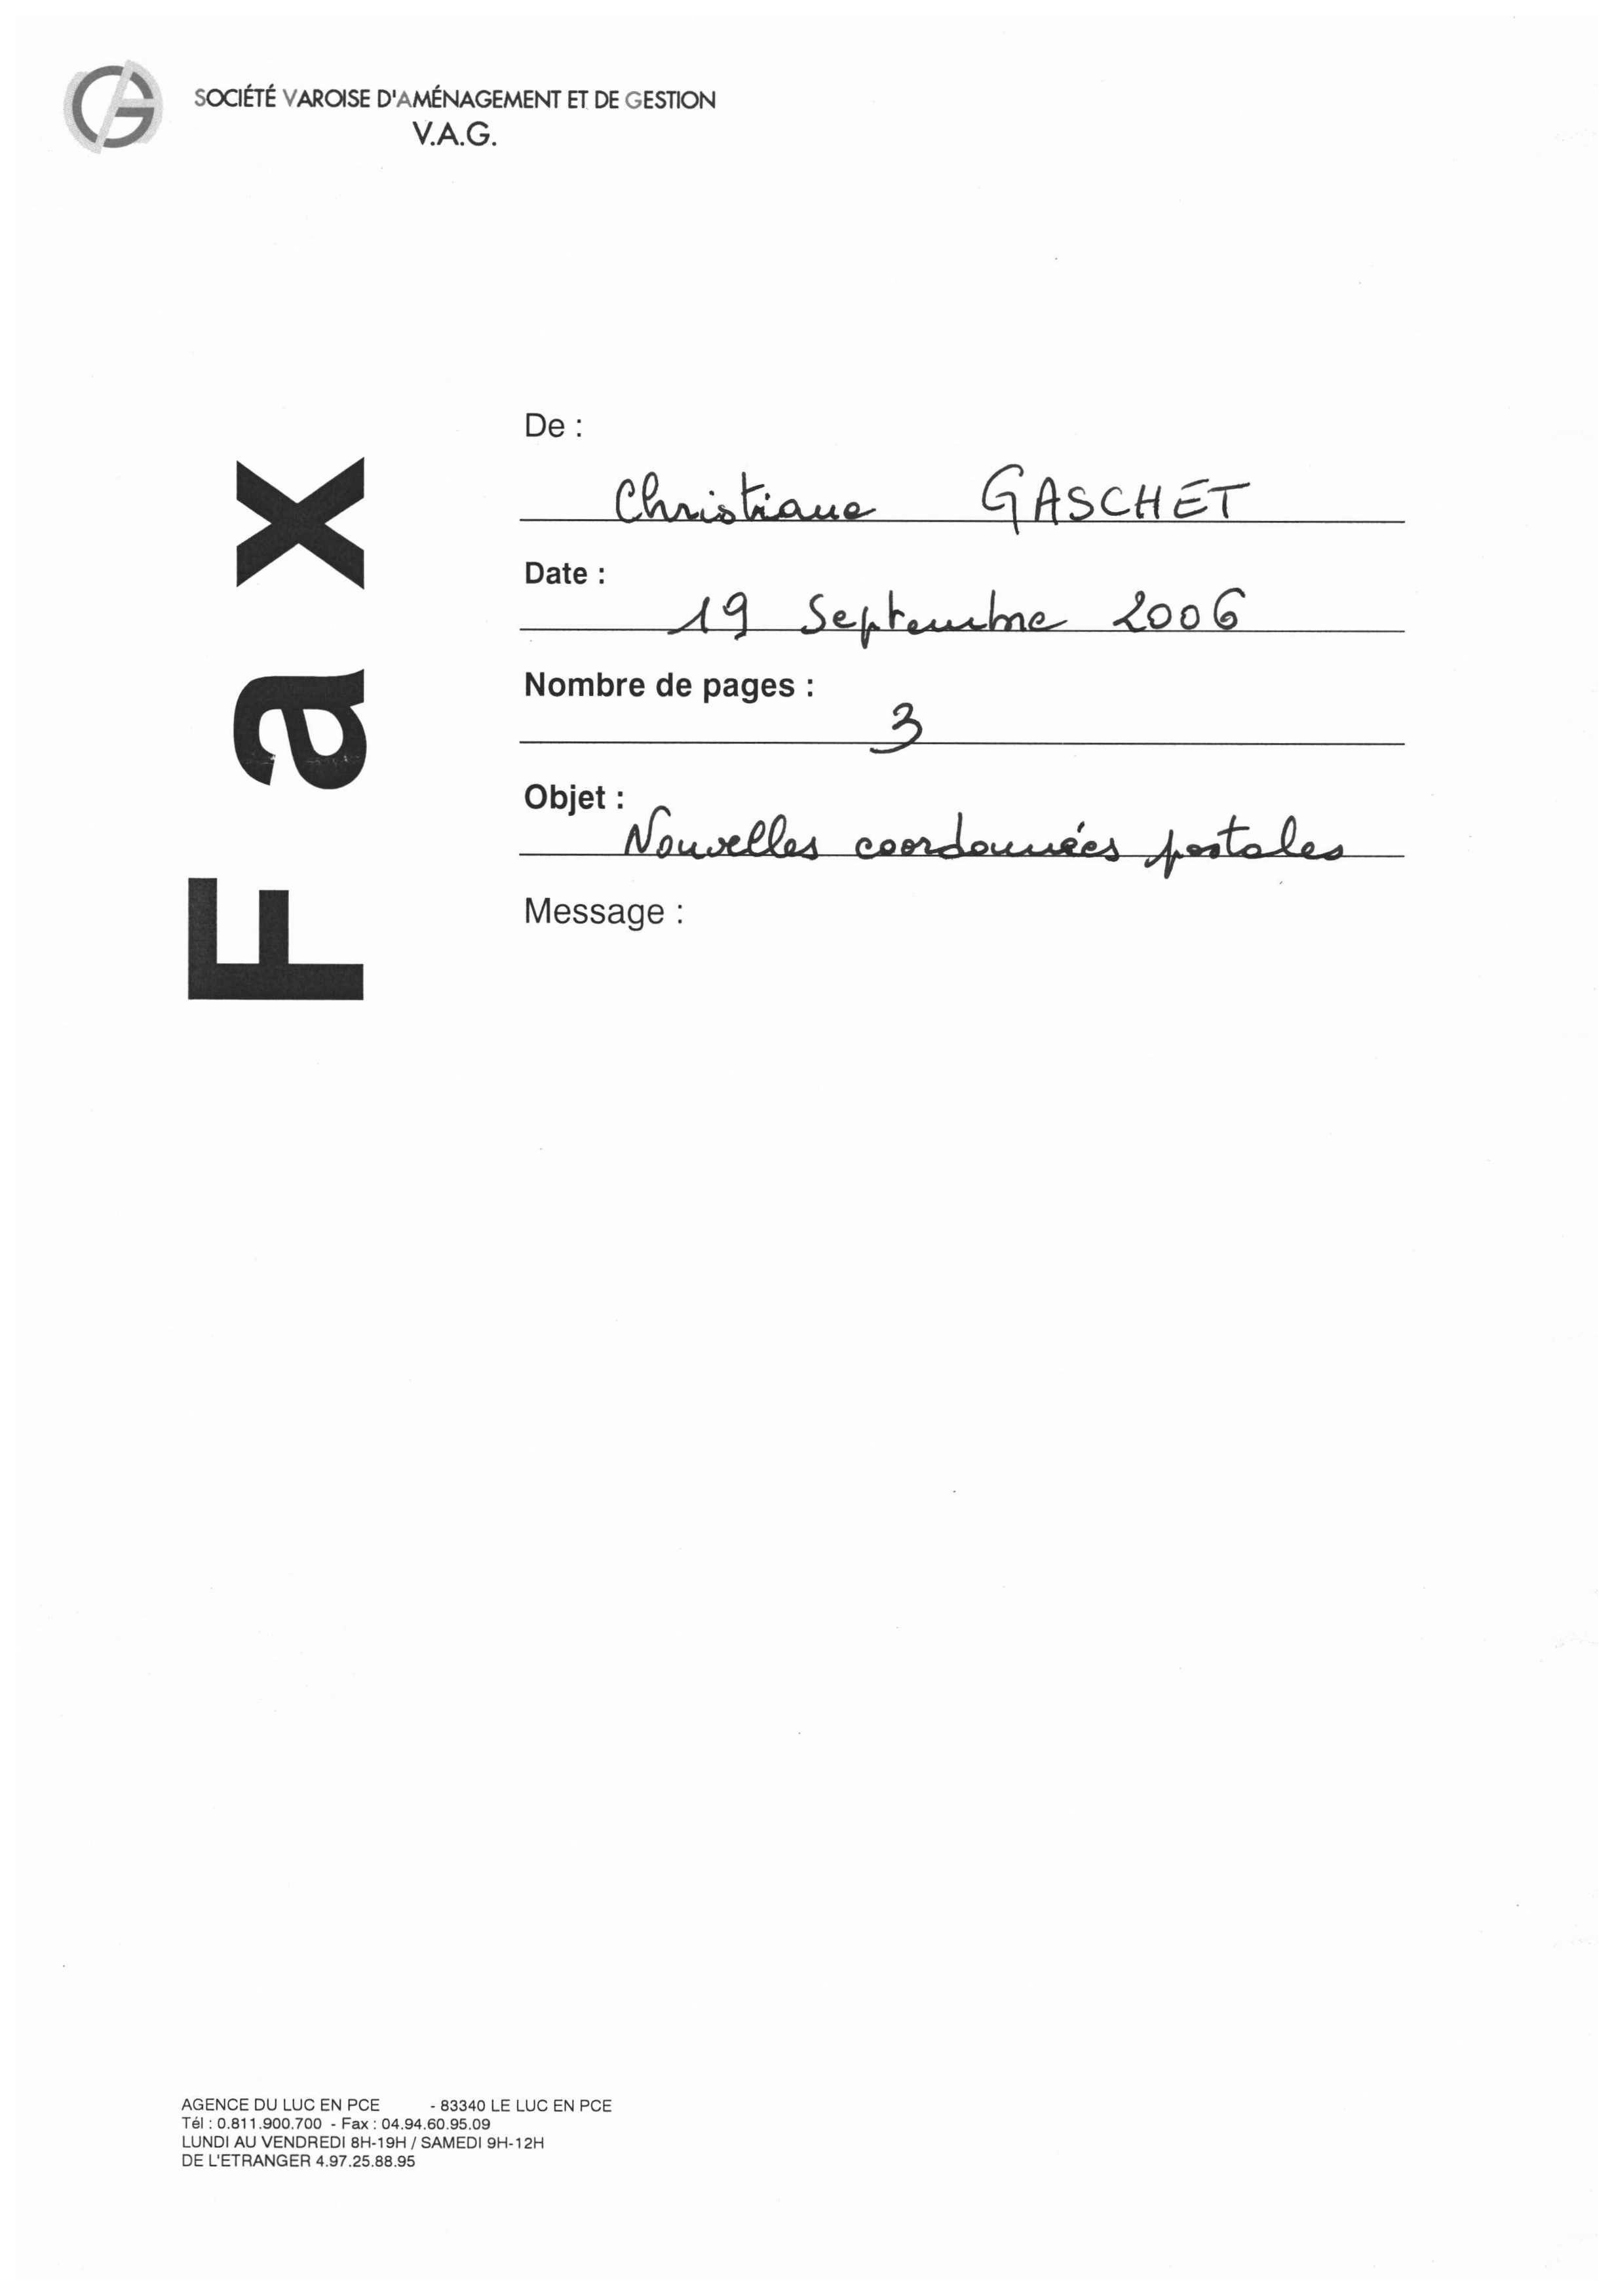 SOCIÉTÉ VAROISE D'AMÉNAGEMENT ET DE GESTION
V.A.G.
Fax
De :
Christiane GASCHET
Date :
19 Septembre 2006
Nombre de pages :
3
Objet :
Nouvelles coordonnées postales
Message :
AGENCE DU LUC EN PCE - 83340 LE LUC EN PCE
Tél : 0.811.900.700 - Fax : 04.94.60.95.09
LUNDI AU VENDREDI 8H-19H / SAMEDI 9H-12H
DE L'ETRANGER 4.97.25.88.95